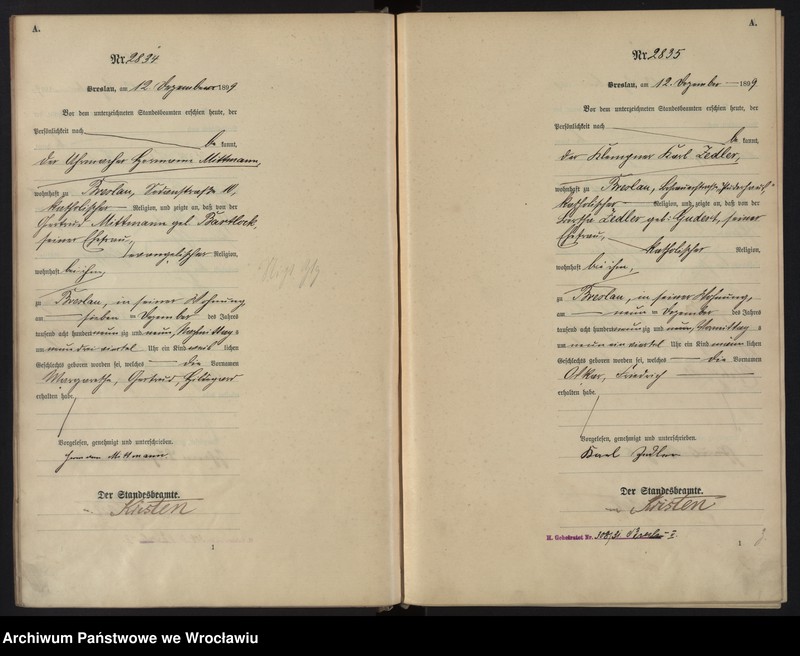 A.
Nr. 2834
Breslau, am 12. Dezember 1899
Vor dem unterzeichneten Standesbeamten erschien heute, der
Persönlichkeit nach
be kannt,
der Uhrmacher Hermann Mittmann,
wohnhaft zu Breslau,
katholischer Religion, und zeigte an, daß von der
Gertrud Mittmann geb. Bartlock,
seiner Ehefrau,
evangelischer Religion,
wohnhaft bei ihm,
zu Breslau, in seiner Wohnung
am sieben ten Dezember des Jahres
tausend acht hundert neun zig und neun, Nachmittag s
um neun drei viertel Uhr ein Kind weib lichen
Geschlechts geboren worden sei, welches die Vornamen
Margarethe, Gertrud, Hildegard
erhalten habe.
Vorgelesen, genehmigt und unterschrieben.
Hermann Mittmann
Der Standesbeamte.
Kirsten
1
A.
Nr. 2835
Breslau, am 12. Dezember 1899
Vor dem unterzeichneten Standesbeamten erschien heute, der
Persönlichkeit nach
be kannt,
der Klempner Karl Zedler,
wohnhaft zu Breslau,
katholischer Religion, und zeigte an, daß von der
Bertha Zedler geb. Gudert, seiner
Ehefrau,
katholischer Religion,
wohnhaft bei ihm,
zu Breslau, in seiner Wohnung,
am neun ten Dezember des Jahres
tausend acht hundert neun zig und neun, Vormittag s
um neun ein viertel Uhr ein Kind männ lichen
Geschlechts geboren worden sei, welches die Vornamen
Friedrich
erhalten habe.
Vorgelesen, genehmigt und unterschrieben.
Karl Zedler
Der Standesbeamte.
Kirsten
H. Geheiratet Nr. Breslau I.
1
Archiwum Państwowe we Wrocławiu